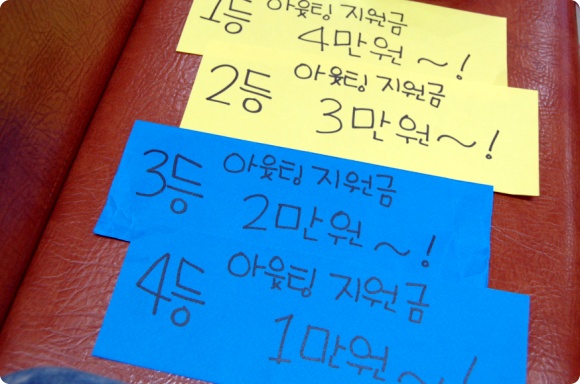 1등 아웃팅 지원금
4만원~!
2등 아웃팅 지원금
3만원~!
3등 아웃팅 지원금
2만원~!
4등 아웃팅 지원금
1만원~!